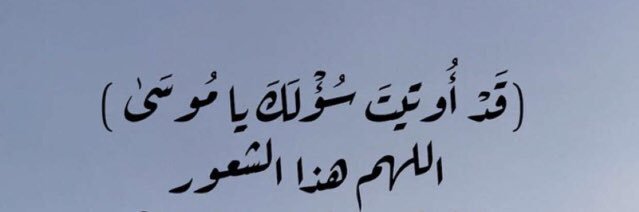 (قَدْ أُوتِيتَ سُؤْلَكَ يا مُوسَىٰ)
اللهم هذا الشعور